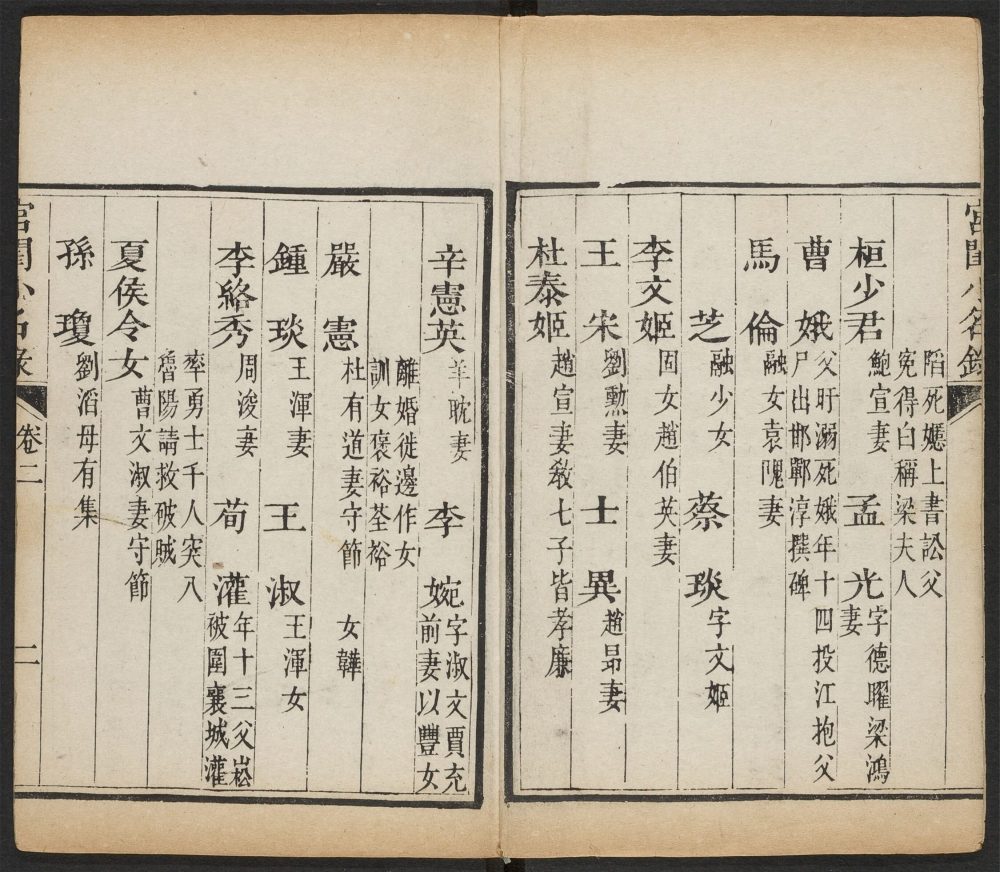 宮閨小名錄
陷死嫕上書訟父
寃得白稱梁夫人
桓少君 鮑宣妻 孟光 字德曜梁鴻妻
曹娥 父旴溺死娥年十四投江抱父尸出邯鄲淳撰碑
馬倫 融女袁隗妻
芝 融少女 蔡琰 字文姬
李文姬 固女趙伯英妻
王宋 劉勲妻 士異 趙昂妻
杜泰姬 趙宣妻敎七子皆孝廉
辛憲英 羊耽妻 李婉 字淑文賈充前妻以豐女
離婚徙邊作女
訓女褒裕荃裕
嚴憲 杜有道妻守節 女韡
鍾琰 王渾妻 王淑 王渾女
李絡秀 周浚妻 荀灌 年十三父崧被圍襄城灌
率勇士千人突入
魯陽請救破賊
夏侯令女 曹文淑妻守節
孫瓊 劉滔母有集
宮閨小名錄 卷二 二